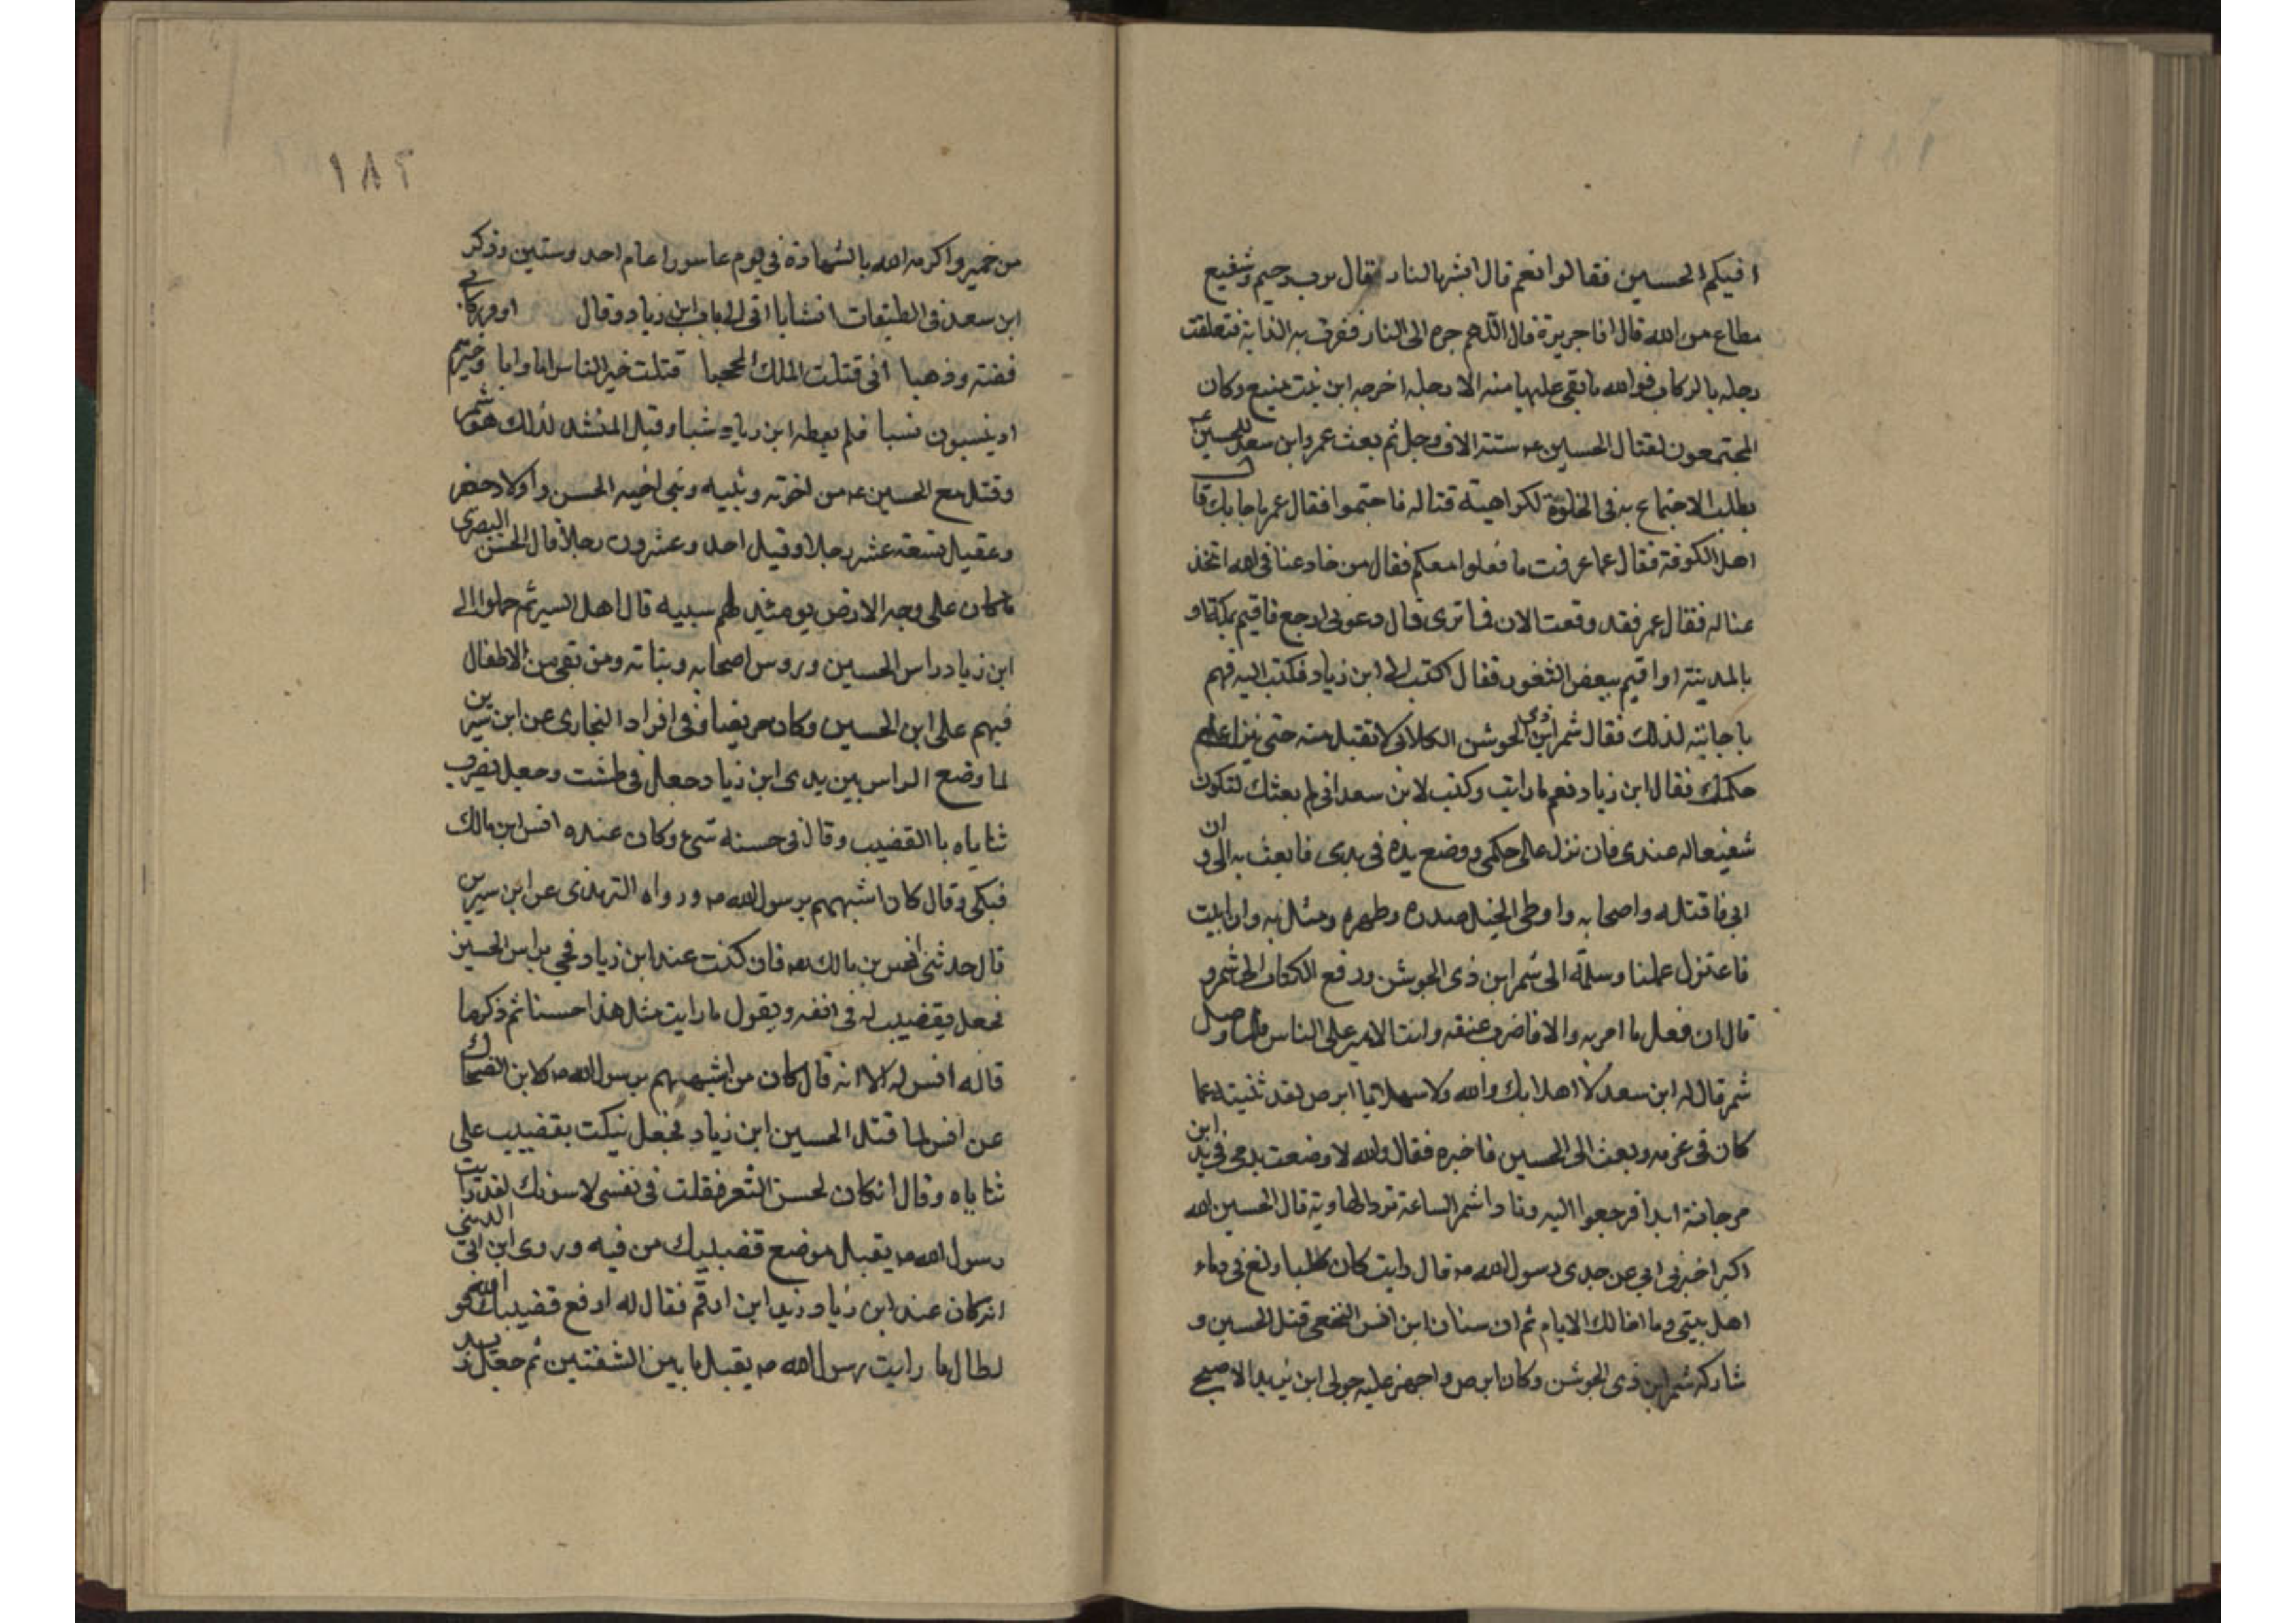 افيكم الحسين فقالوا نعم قال ابشر بالنار فقال برب رحيم وشفيع
مطاع من الله قال انا جريرة قال اللهم جره الى النار فنفرت به الدابة فتعلقت
رجله بالركاب فوالله ما بقى عليها منه الا رجله اخرجه ابن بنت منيع وكان
المجتمعون لقتال الحسين ستة الاف رجل ثم بعث عمر وابن سعد للحسين
بطلب الاجتماع به فى الخلوة لكراهية قتاله فاجتمعوا فقال عمر ما جا بك قا
اهل الكوفة فقال عما عرفت ما فعلوا معكم فقال من خادعنا فى الله اتخذ
عناله فقال عمر فقد وقعت الان فما ترى قال دعونى ارجع فاقيم بمكة او
بالمدينة او اقيم ببعض الثغور فقال اكتب الى ابن زياد فكتب اليه فهم
باجابته لذلك فقال شمر ابن ذى الجوشن الكلابى لا تقبل منه حتى ينزل على
حكمك فقال ابن زياد نعم ما رايت وكتب لابن سعد انى لم بعثك لتكون
شفيعا له عندى فان نزل على حكمى ووضع يده فى يدى فابعث به الى وان
ابى فاقتله واصحابه واوطى الخيل صدره وظهره ومثل به وان ابيت
فاعتزل عملنا وسلمه الى شمر ابن ذى الجوشن ودفع الكتاب الى شمر و
قال ان فعل ما امر به والا فاضرب عنقه وانت الامير على الناس فلما وصل
شمر قال له ابن سعد لا اهلا بك والله ولا سهلا يا ابرص لقد ثنيته عما
كان فى عزمه وبعث الى الحسين فاخبره فقال والله لا وضعت يدى فى يد ابن
مرجانة ابدا فرجعوا اليه ونادا شمر الساعة ترد الهاوية قال الحسين الله
اكبر اخبرنى ابى عن جدى رسول الله صه قال رايت كان كلبا ولغ فى دماء
اهل بيتى وما اخالك الا ثم ان سنان ابن انس النخعى قتل الحسين و
شاركه شمر ابن ذى الجوشن وكان ابرص واجهز عليه خولى ابن يزيد الاصبحى
١٨٢
من حمير واكرمه الله بالشهادة فى يوم عاسورا عام احد وستين وذكر
ابن سعد فى الطبقات ان سنانا اتى الى باب ابن زياد وقال اوقر ركابى
فضة وذهبا انى قتلت الملك المحجبا قتلت خير الناس اما وابا وخيرهم
اذ ينسبون نسبا فلم يعطه ابن زياد شيا وقيل المنشد لذلك هو شمر
وقتل مع الحسين عه من اخوته وبنيه وبنى اخيه الحسن واولاد جعفر
وعقيل تسعة عشر رجلا وقيل احد وعشرون رجلا قال الحسن البصرى
ما كان على وجه الارض يومئذ لهم سبيه قال اهل السير ثم حملوا الى
ابن زياد راس الحسين وروس اصحابه وبناته ومن بقى من الاطفال
فيهم على ابن الحسين وكان مريضا وفى افراد البخارى عن ابن سيرين
لما وضع الراس بين يدى ابن زياد جعل فى طشت وجعل يضرب
ثناياه با القضيب وقال فى حسنه شئ وكان عنده انس ابن مالك
فبكى وقال كان اشبههم برسول الله صه ورواه الترمذى عن ابن سيرين
قال حدثنى انس بن مالك قال كنت عند ابن زياد فجئ براس الحسين
فجعل يقضيب له فى انفه ويقول ما رايت مثل هذا حسنا ثم ذكر ما
قاله انس له الا انه قال كان من اشبههم برسول الله صه كابن الضحاك
عن انس لما قتل الحسين ابن زياد فجعل ينكت بقضيب على
ثناياه وقال ان كان لحسن الثغر فقلت فى نفسى لاسونك لقد رايت
رسول الله صه يقبل موضع قضيبك من فيه وروى ابن ابى الدينى
انه كان عند ابن زياد زيد ابن ارقم فقال له ارفع قضيبك فو الله
لطال ما رايت رسول الله صه يقبل ما بين الشفتين ثم جعل زيد